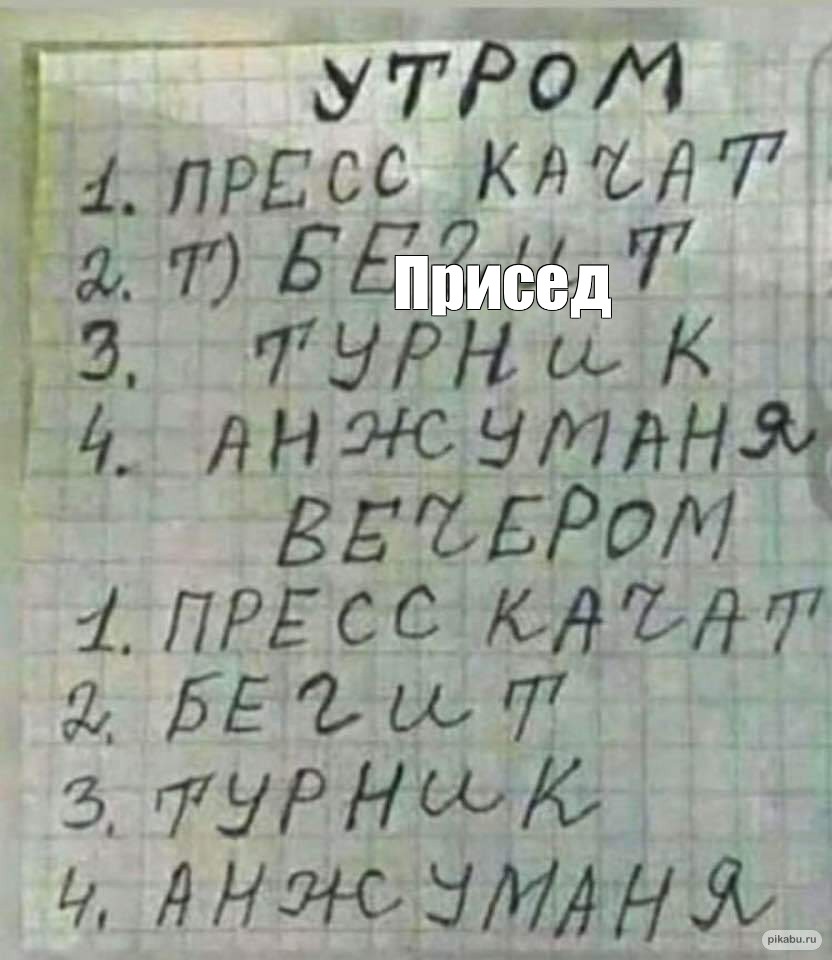 УТРОМ
1. ПРЕСС КАЧАТ
2. Т) БЕГИТ
Присед
3. ТУРНИК
4. АНЖУМАНЯ
ВЕЧЕРОМ
1. ПРЕСС КАЧАТ
2. БЕГИТ
3. ТУРНИК
4. АНЖУМАНЯ
pikabu.ru